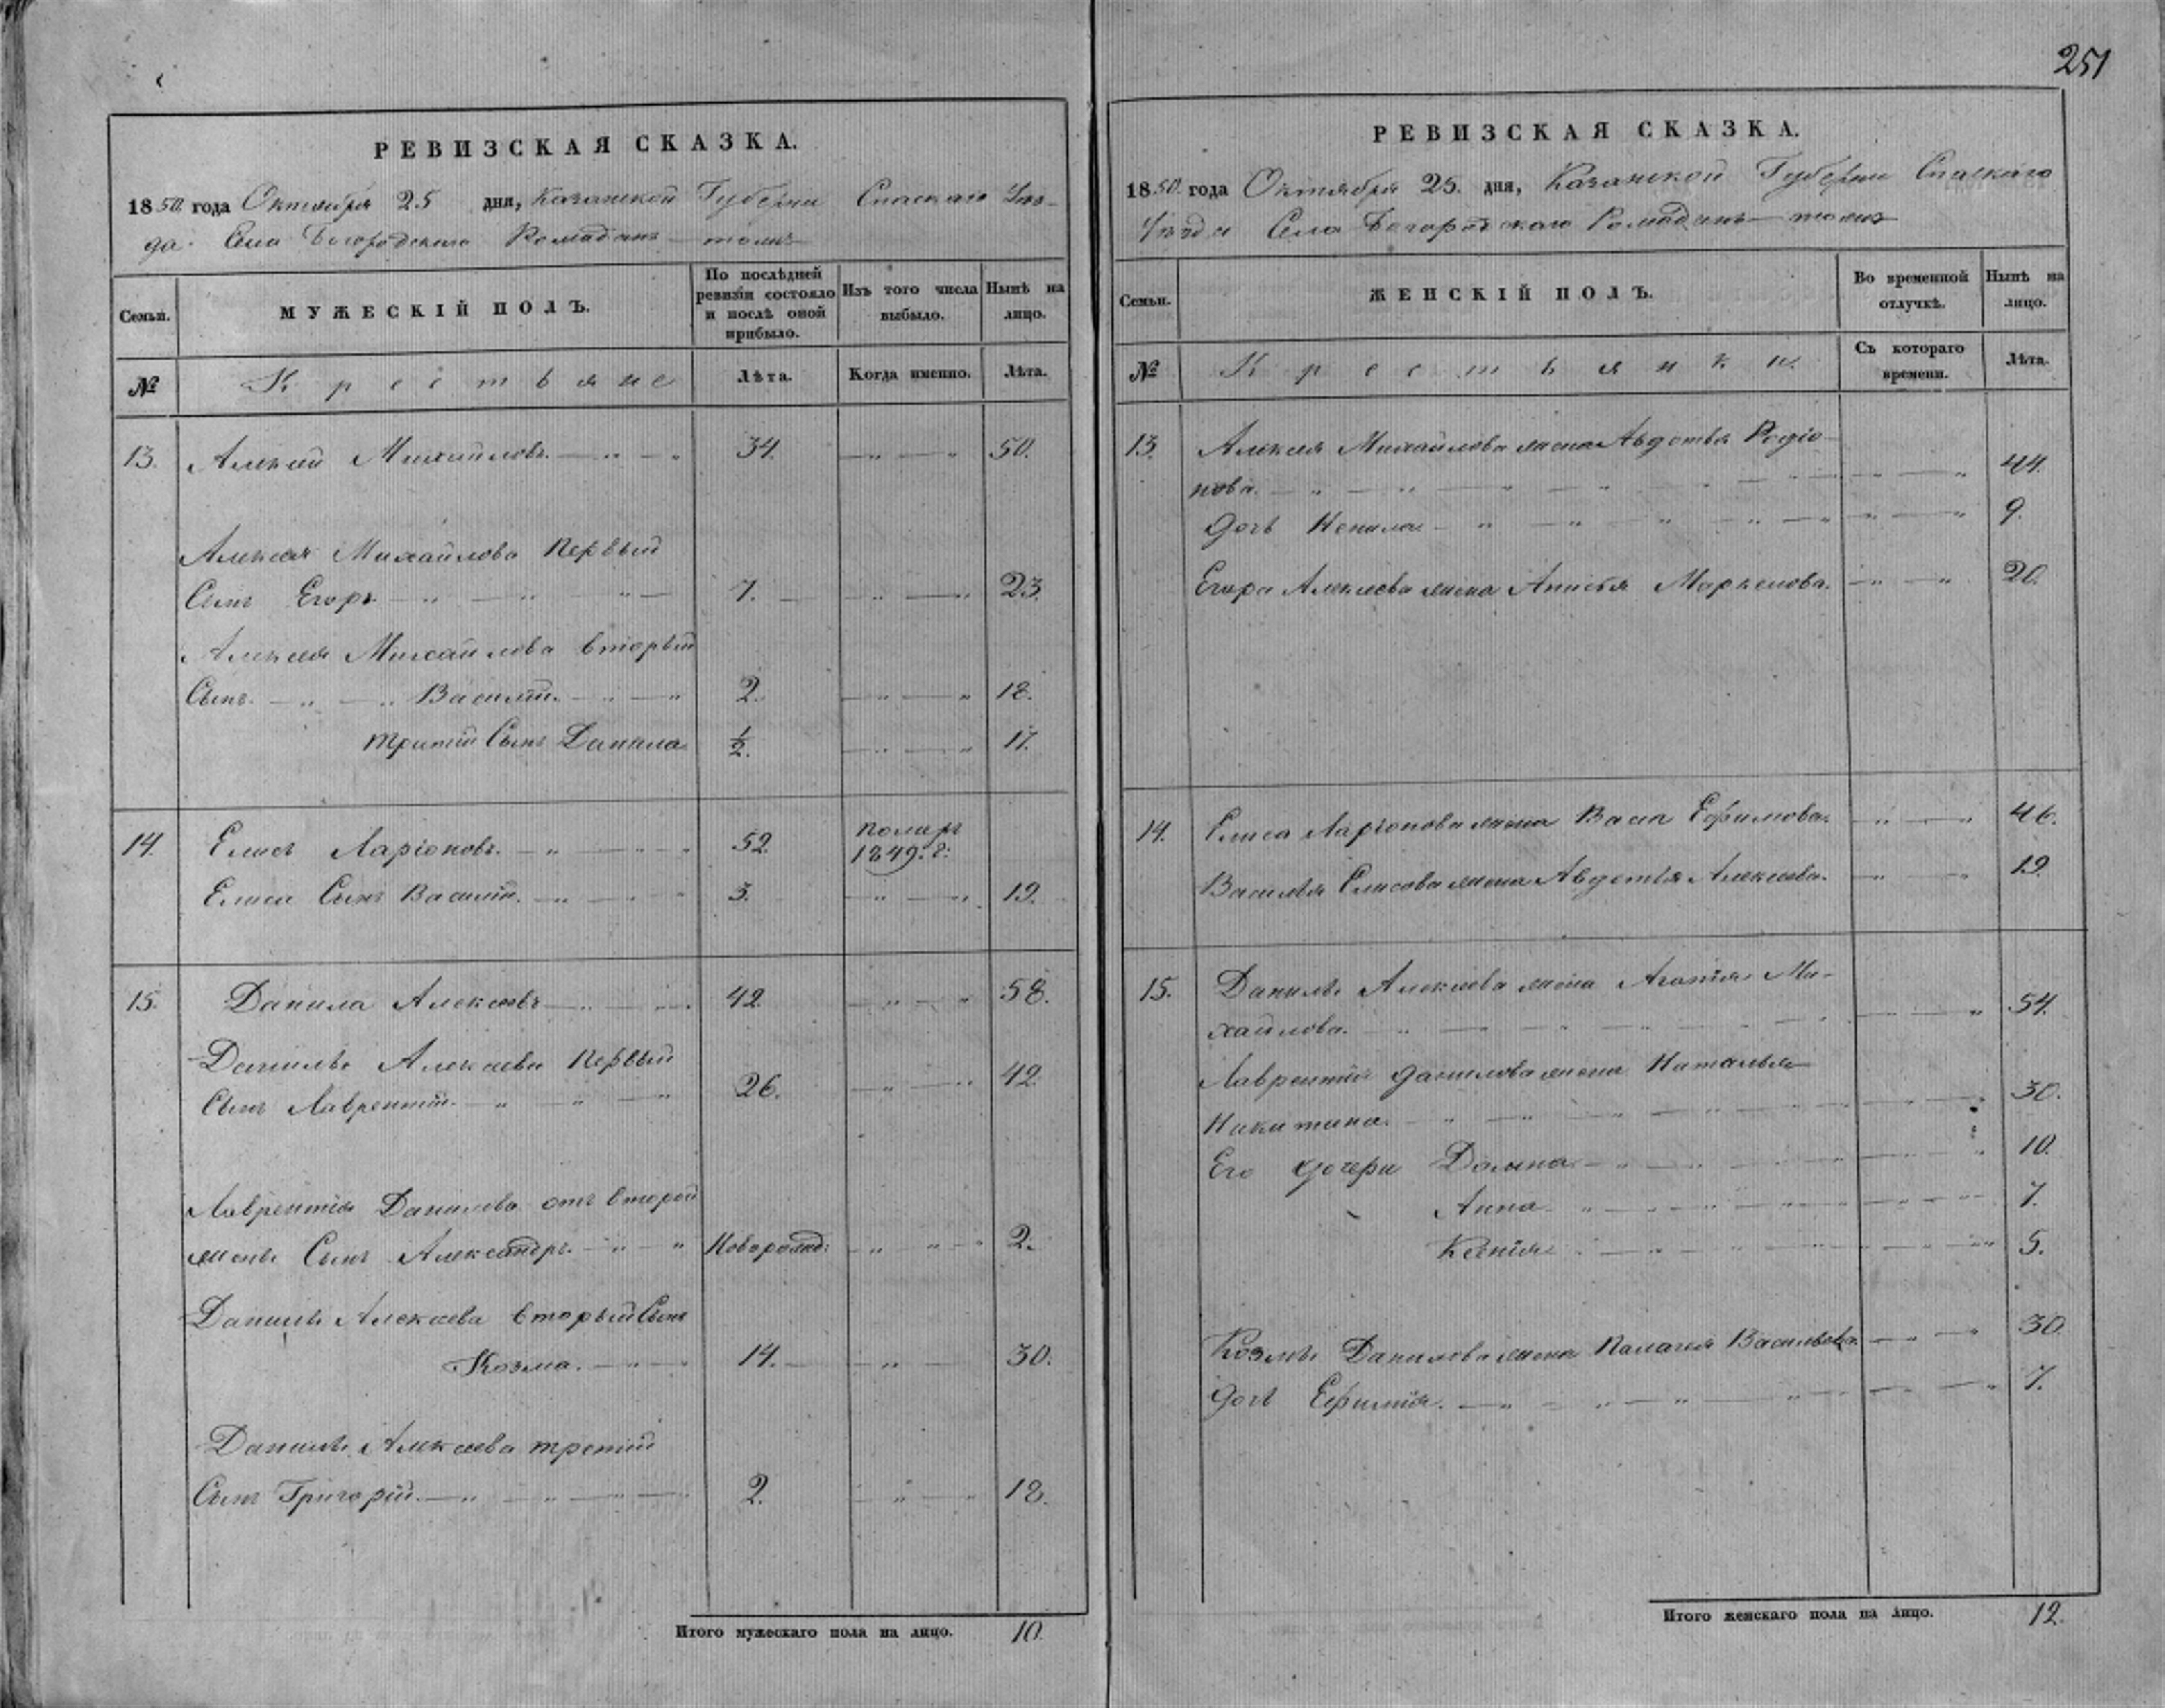 251
РЕВИЗСКАЯ СКАЗКА.
1850 года Октября 25 дня, Казанской Губерни Спаскаго Уѣз-
да. Села Богородскаго Ромадан тожъ
Семьи.
МУЖЕСКІЙ ПОЛЪ.
По послѣдней ревизіи состояло и послѣ оной прибыло.
Изъ того числа выбыло.
Нынѣ на лицо.
№
Крестьяне
Лѣта.
Когда именно.
Лѣта.
13. Алексей Михайловъ. 34. 50.
Алексея Михайлова первый
Сынъ Егоръ 7. 23.
Алексея Михайлова вторый
Сынъ. Василій. 2. 18.
третій Сынъ Данила 1/2. 17.
14. Елисъ Ларіоновъ. 52. померъ 1849. г.
Елиса Сынъ Василій. 3. 19.
15. Данила Алексеевъ 42. 58.
Данилы Алексеева первый
Сынъ Лаврентій. 26. 42.
Лаврентія Данилова отъ второй
жены Сынъ Александръ. Новорожд: 2.
Данилы Алексеева вторый Сынъ
Козма. 14. 30.
Данилы Алексеева третій
Сынъ Григорій. 2. 18.
Итого мужескаго пола на лицо. 10.
РЕВИЗСКАЯ СКАЗКА.
1850. года Октября 25. дня, Казанской Губерни Спаскаго
Уѣзда Села Богородскаго Ромадан тожъ
Семьи.
ЖЕНСКІЙ ПОЛЪ.
Во временной отлучкѣ.
Нынѣ на лицо.
№
Крестьянки.
Съ котораго времени.
Лѣта.
13. Алексея Михайлова жена Авдотья Родіо-
нова. 44.
дочь Ненила 9.
Егора Алексеева жена Анисья Маркелова. 20.
14. Елиса Ларіонова жена Васа Ефимова. 46.
Василья Елисова жена Авдотья Алексеева. 19.
15. Данилы Алексеева жена Агафія Ми-
хайлова. 54.
Лаврентія Данилова жена Наталья
Никитина. 30.
Его дочери Домна 10.
Анна 7.
Ксенія 5.
Козмы Данилова жена Палагея Васильева. 30.
дочь Ефимія. 7.
Итого женскаго пола на лицо. 12.